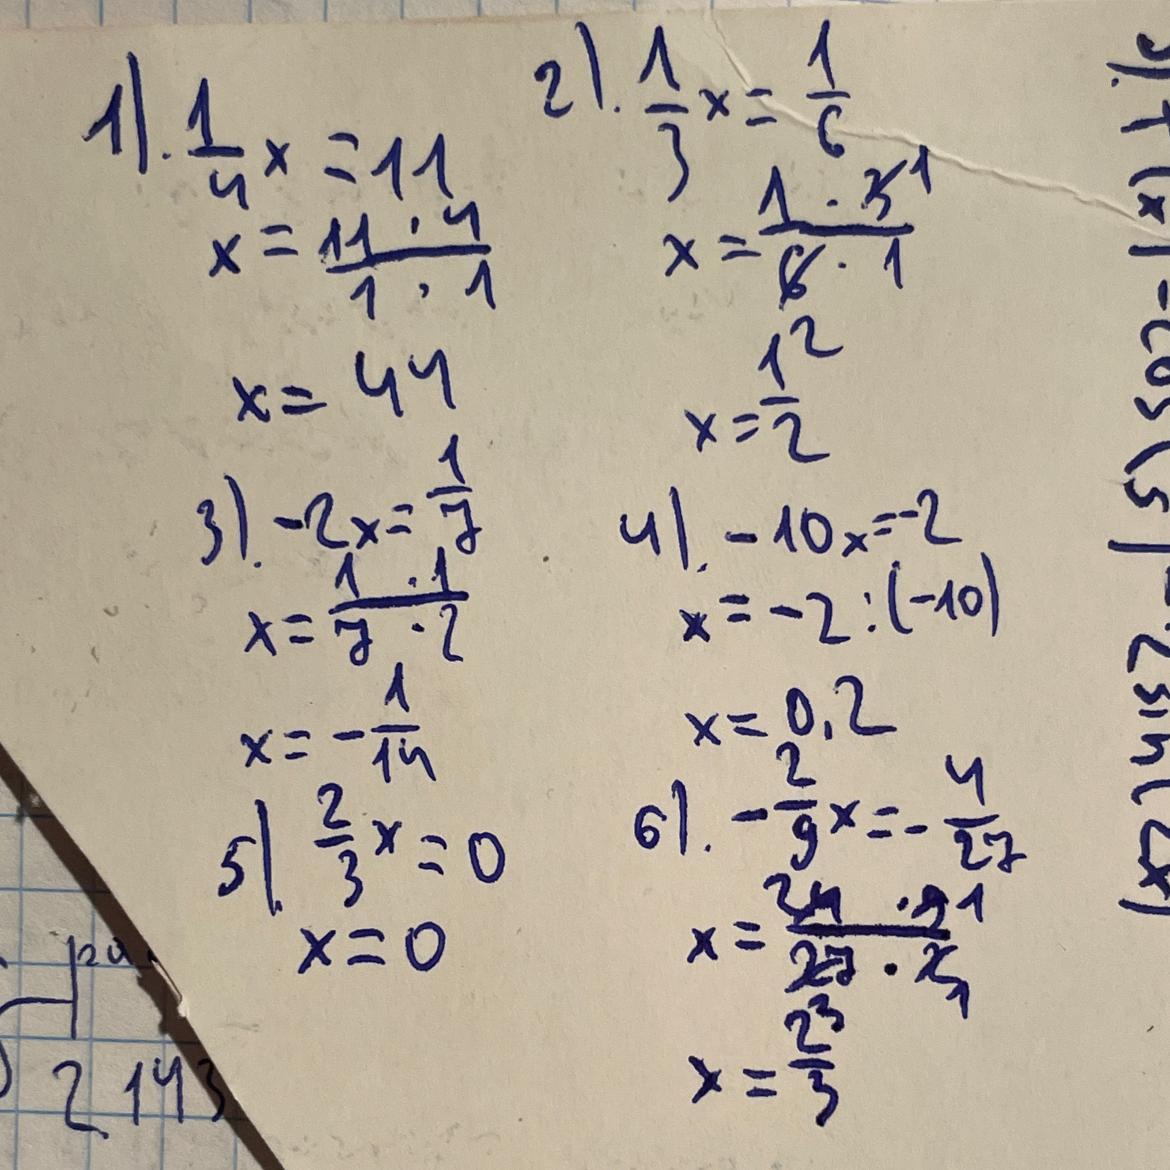 1). 1/4 x = 11
x = 11 · 4 / 1 · 1
x = 44
2). 1/3 x = 1/6
x = 1 · 3 1 / 6 · 1
2
x = 1/2
3). -2x = 1/7
x = 1 · 1 / 7 · 2
x = - 1/14
4). -10x = -2
x = -2 : (-10)
x = 0,2
5). 2/3 x = 0
x = 0
6). - 2/9 x = - 4/27
x = 2 4 · 9 1 / 27 · 2 1
3
x = 2/3
2 143